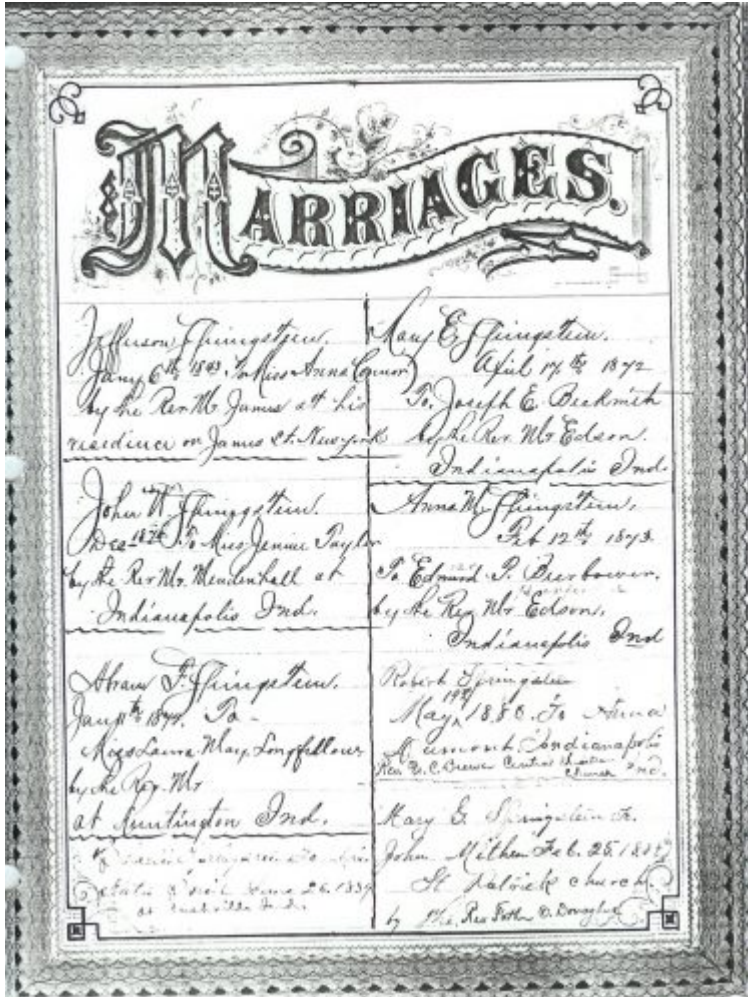 MARRIAGES.
Jefferson Springsteen.
Jany 6th 1843. To Miss Anna Connor
by the Rev Mr. James at his
residence on James St. New-york
John W Springsteen.
Dec 1876 To Miss Jennie Taylor
by the Rev Mr. Mendenhall at
Indianapolis Ind.
Abram F. Springsteen.
Jany 11th To
Miss Laura May. Longfellow
by the Rev. Mr
at Huntington Ind.
26. 1889
at Ind.
Mary E. Springsteen.
April 17th 1872
To. Joseph E. Beckwith
by the Rev. Mr Edson.
Indianapolis Ind.
Anna M. Springsteen.
Feb 12th 1873.
To Edmund P. Bierbower.
by the Rev Mr Edson.
Indianapolis Ind
Robert Springsteen
May 19th 1880. To Anna
Indianapolis
Rev. Brewer Central Christian
Church Ind.
Mary G. Springsteen to.
John Feb. 25.
St Patrick church.
by The. Rev Father